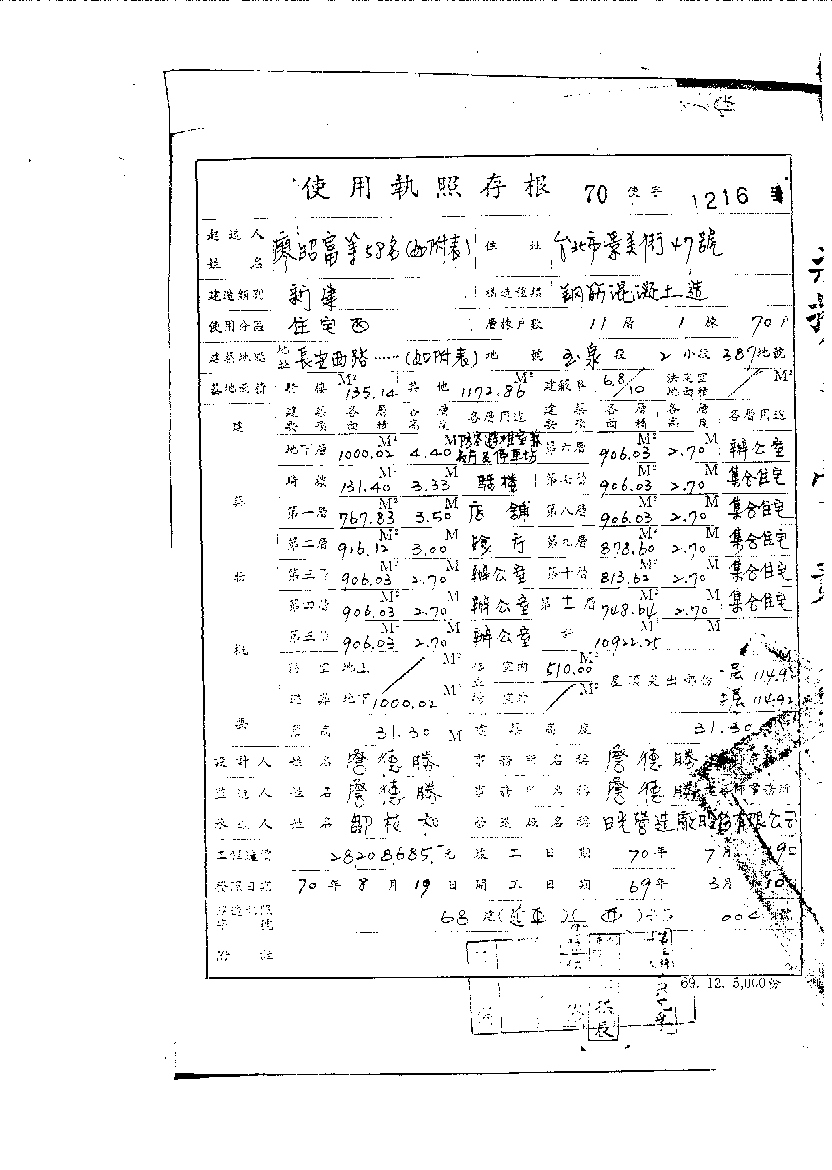 使用執照存根 70 使字 1216 號
起造人姓名 廖昭富等58名(如附表) 住址 台北市景美街47號
建造類別 新建 構造種類 鋼筋混凝土造
使用分區 住宅西 層棟戶數 11層 1棟 70戶
建築地點 地址 長安西路……(如附表) 地號 玉泉段 2小段 387地號
基地面積 騎樓 135.14 M² 其他 1172.86 M² 建蔽率 6.8/10 法定空地面積 M²
建築要項 各層面積 各層高度 各層用途 建築要項 各層面積 各層高度 各層用途
地下層 1000.02 M² 4.40 M 防空避難室兼 停車場 第六層 906.03 M² 2.70 M 辦公室
騎樓 131.40 M² 3.33 M 騎樓 第七層 906.03 M² 2.70 M 集合住宅
第一層 767.83 M² 3.50 M 店舖 第八層 906.03 M² 2.70 M 集合住宅
第二層 916.12 M² 3.00 M 銀行 第九層 878.60 M² 2.70 M 集合住宅
第三層 906.03 M² 2.70 M 辦公室 第十層 813.62 M² 2.70 M 集合住宅
第四層 906.03 M² 2.70 M 辦公室 第十一層 748.64 M² 2.70 M 集合住宅
第五層 906.03 M² 2.70 M 辦公室 計 10922.25 M² M
防空 地上 M² 室內 510.00 M² 屋頂突出部份 一層 114.92
避難 地下 1000.02 M² 室外 M² 二層 114.92
簷高 31.30 M 建築高度 31.30
設計人 姓名 詹德勝 事務所名稱 詹德勝
監造人 姓名 詹德勝 事務所名稱 詹德勝建築師事務所
承造人 姓名 營造廠名稱 日光營造廠股份有限公司
工程造價 28208685元 竣工日期 70年 7月
發照日期 70年8月19日 開工日期 69年 3月 10
建造執照字號 68建 004 號
附註
69. 12. 5,000份